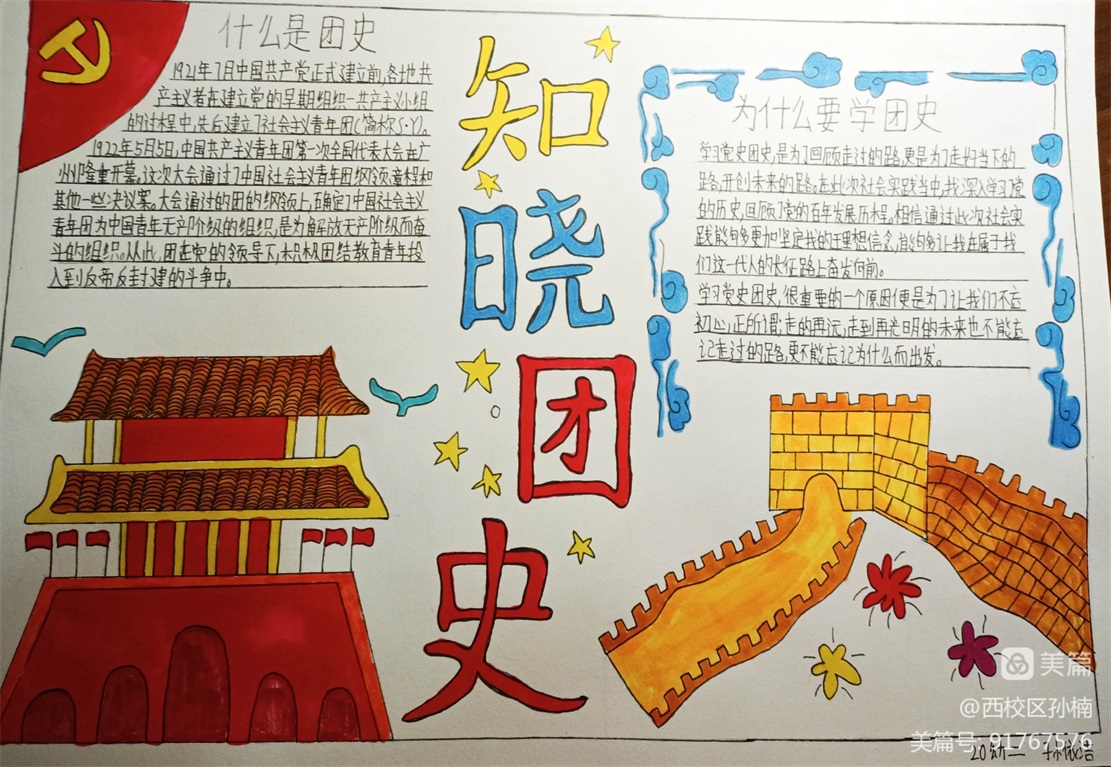 什么是团史
1921年7月中国共产党正式建立前,各地共
产主义者在建立党的早期组织一共产主义小组
的过程中,先后建立了社会主义青年团(简称S·Y)。
1922年5月5日,中国共产主义青年团第一次全国代表大会在广
州隆重开幕。这次大会通过了中国社会主义青年团纲领,章程和
其他一些决议案。大会通过的团的纲领上,在确定了中国社会主义
青年团为中国青年无产阶级的组织,是为解放无产阶级而奋
斗的组织。从此,团在党的领导下,积极团结教育青年投
入到反帝反封建的斗争中。
知
晓
团
史
为什么要学团史
学习党史团史,是为了回顾走过的路,更是为了走好当下的
路,开创未来的路。在此次社会实践当中,我深入学习党
的历史,回顾了党的百年发展历程。相信通过此次社会实
践能够更加坚定我的理想信念,能够让我在属于我
们这一代人的长征路上奋发向前。
学习党史团史,很重要的一个原因便是为了让我们不忘
初心,正所谓:走的再远,走到再光明的未来也不能忘
记走过的路,更不能忘记为什么而出发。
美篇
@西校区孙楠
美篇号:91767576
20幼二